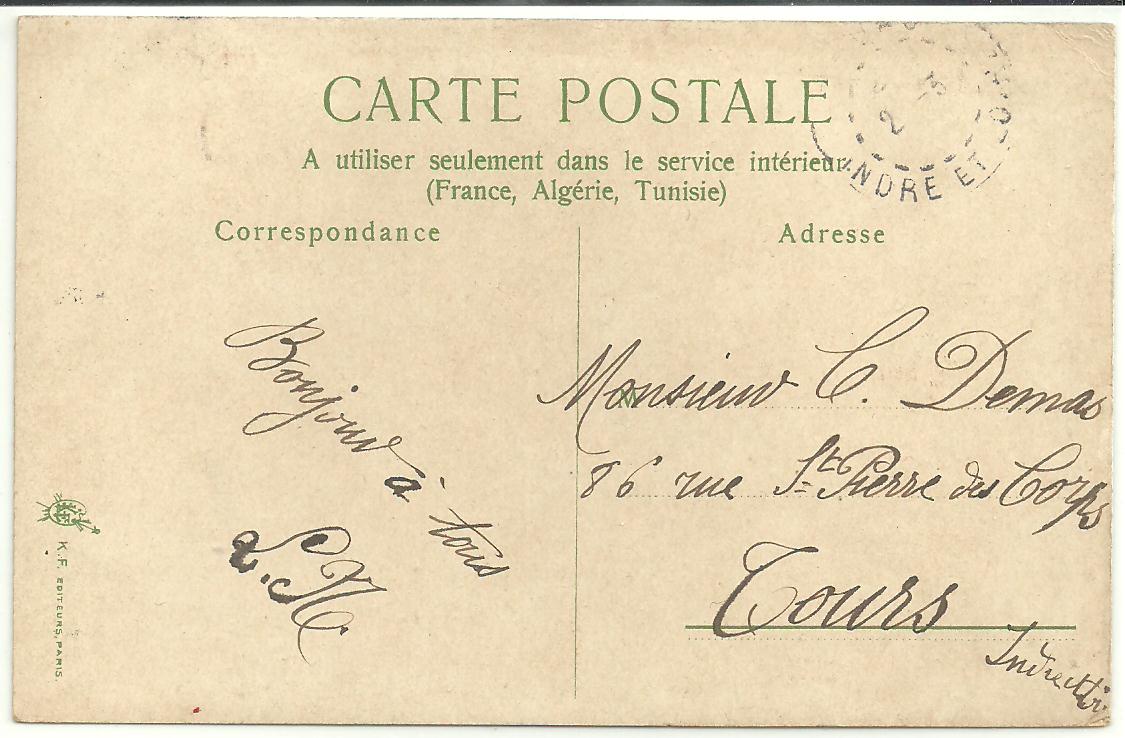 CARTE POSTALE
A utiliser seulement dans le service intérieur
(France, Algérie, Tunisie)
Correspondance
Adresse
2 -3
INDRE ET LOIRE
Bonjour à tous
L. M.
Monsieur C. Demas
86 rue St. Pierre des Corps
Tours
Indre et
K.F. EDITEURS, PARIS.